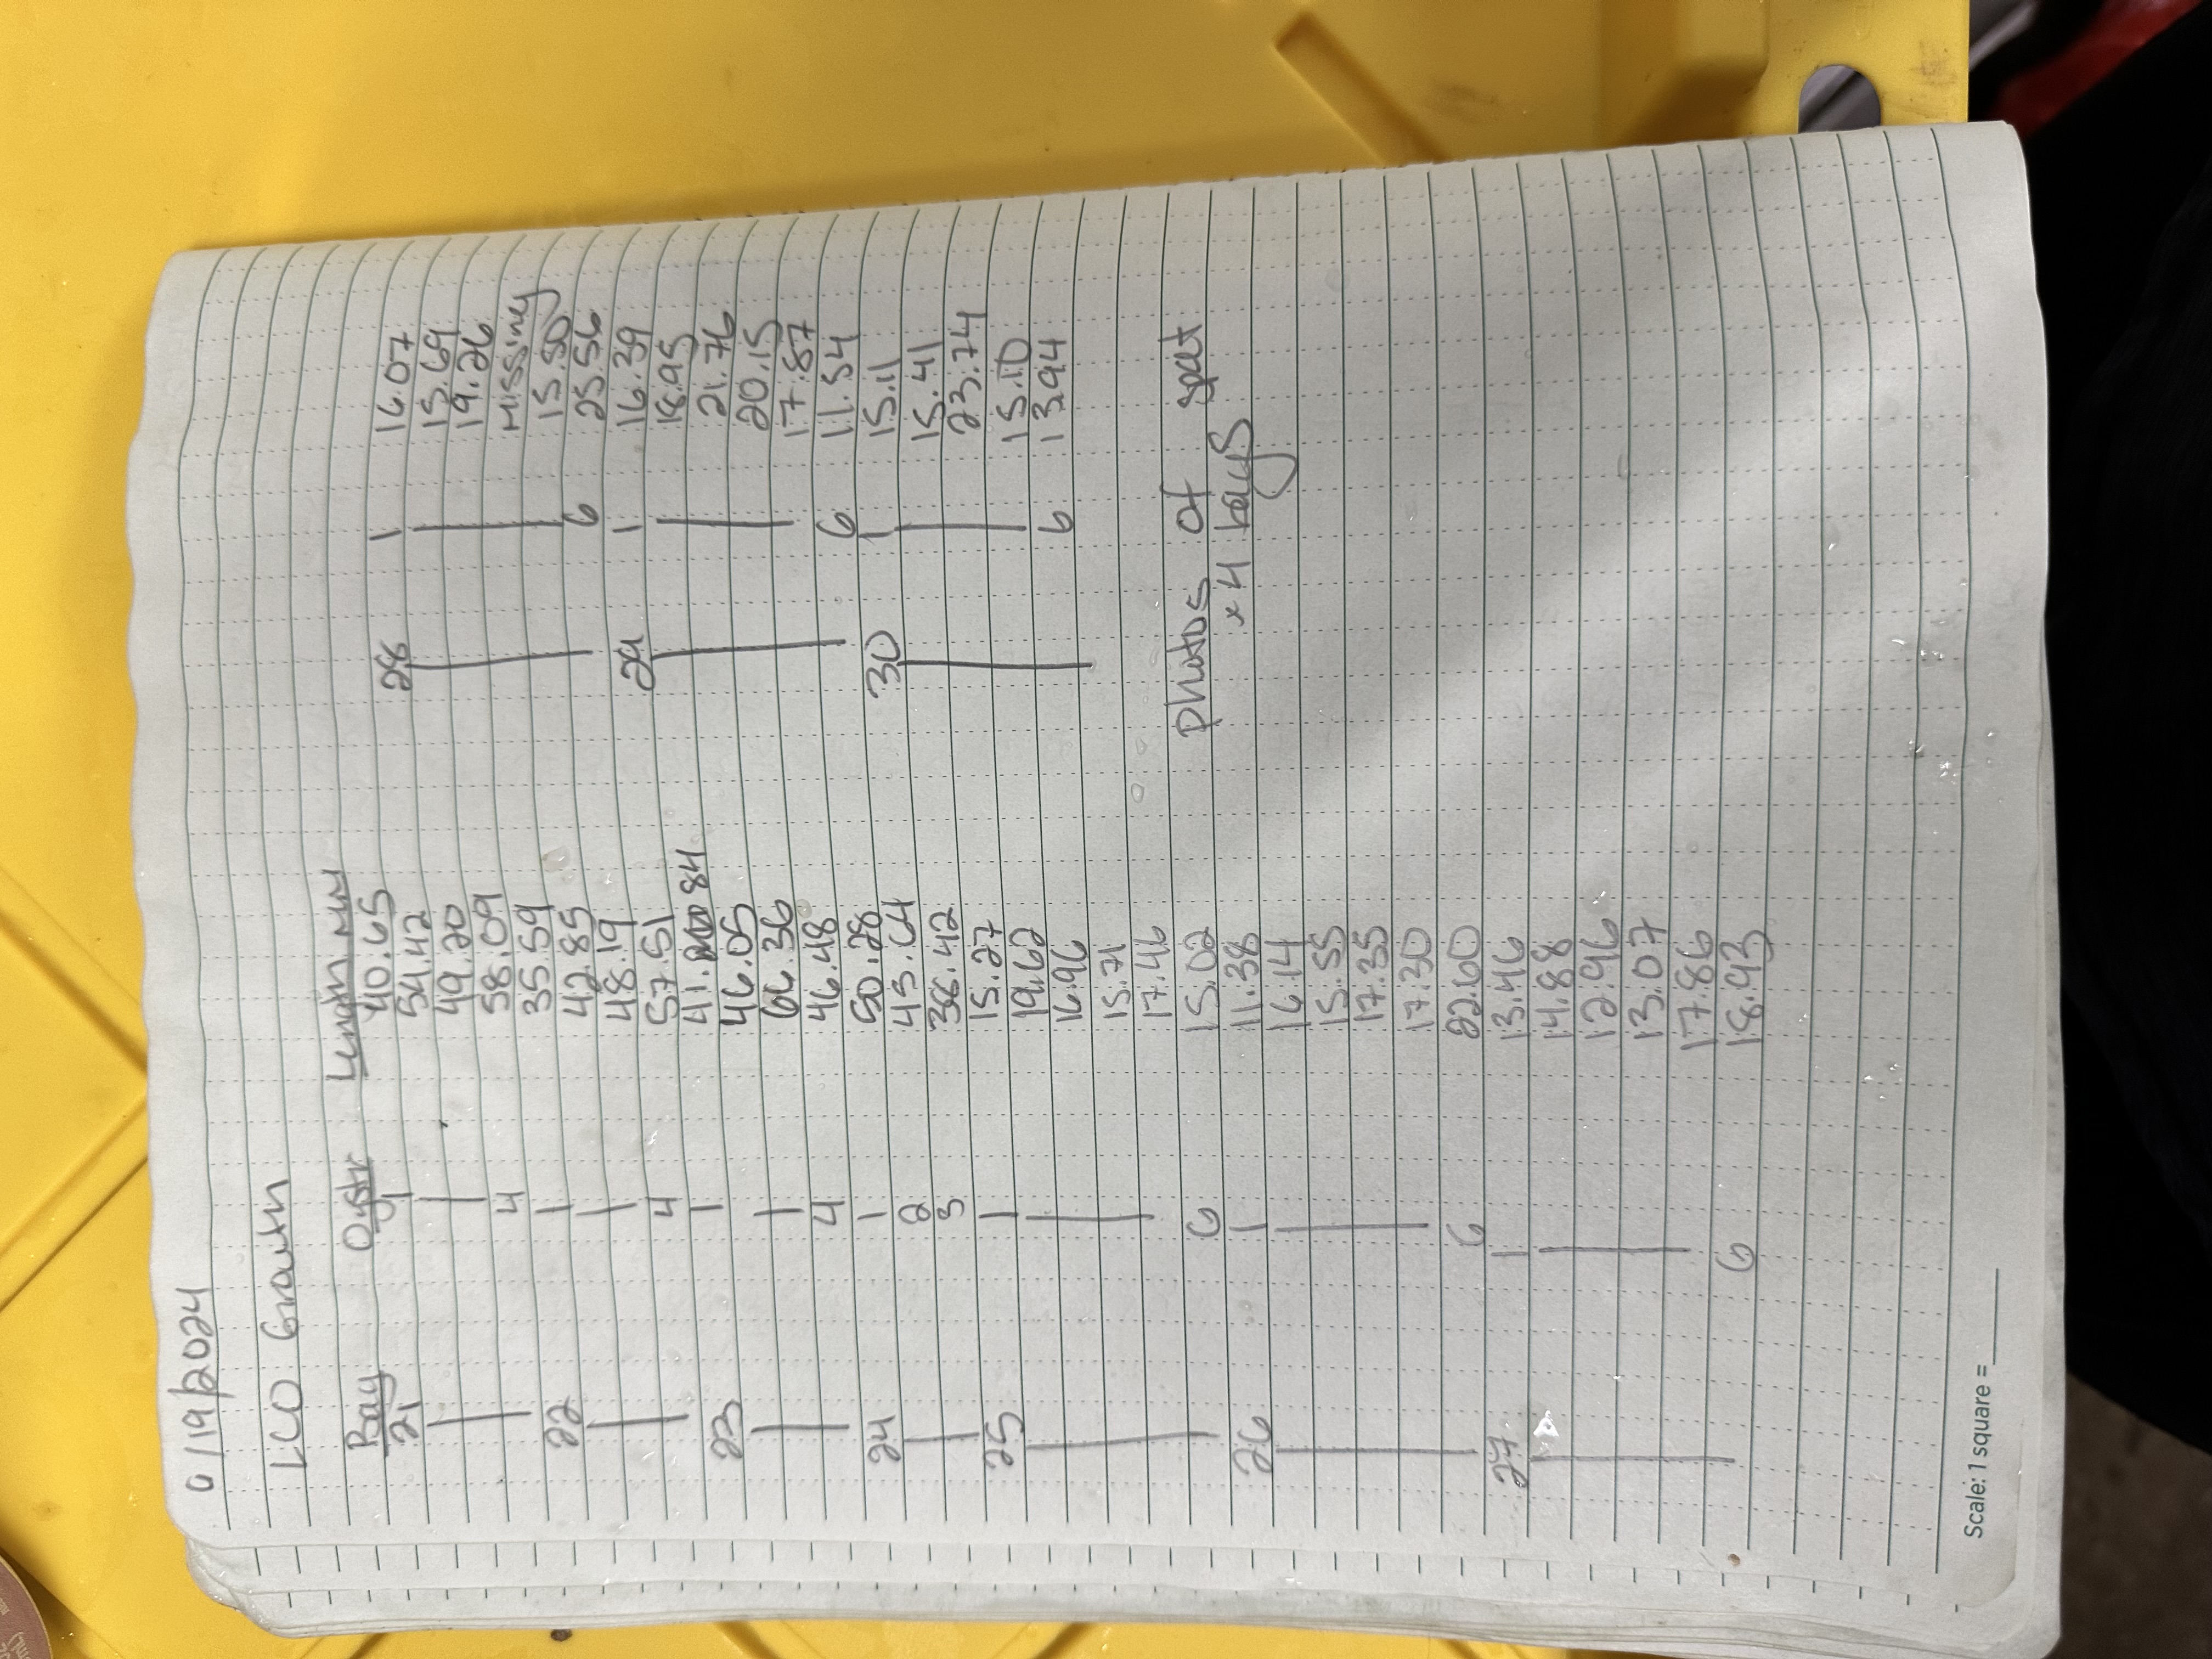 6/19/2024
LCO Growth
Bag Oystr Length MM
21 1 40.65
54.42
49.20
4 58.09
22 1 35.59
42.85
48.19
4 57.51
23 1 41.84
46.05
66.36
4 46.48
24 1 50.28
2 45.64
3 38.42
25 1 15.27
19.62
16.96
15.71
17.46
6 15.02
26 1 11.38
16.14
15.55
17.35
17.30
6 22.60
27 1 13.46
14.88
12.96
13.07
17.86
6 18.93
28 1 16.07
15.69
19.26
Missing
15.50
6 25.56
29 1 16.39
18.95
21.76
20.15
17.87
6 11.54
30 1 15.11
15.41
23.74
15.10
6 13.94
photos of spat
x4 bags
Scale: 1 square =